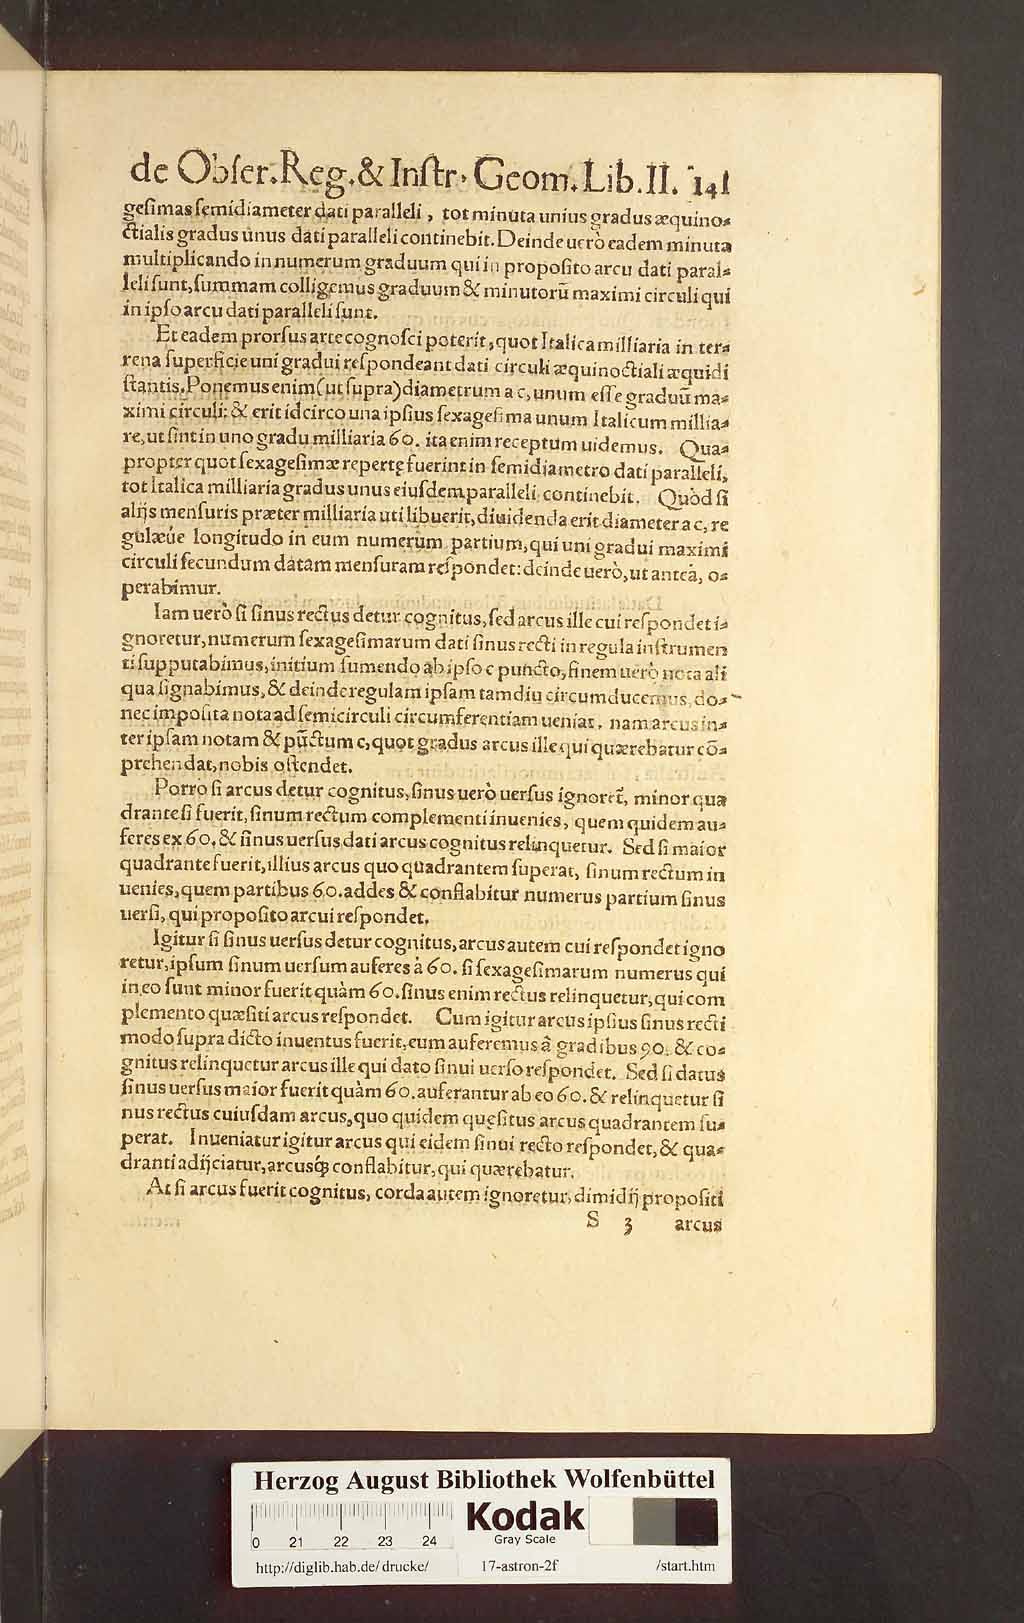 de Obſer. Reg. & Inſtr. Geom. Lib. II. 141
geſimas ſemidiameter dati paralleli, tot minuta unius gradus æquino⸗
ctialis gradus unus dati paralleli continebit. Deinde uerò eadem minuta
multiplicando in numerum graduum qui in propoſito arcu dati paral⸗
leli ſunt, ſummam colligemus graduum & minutorũ maximi circuli qui
in ipſo arcu dati paralleli ſunt.
Et eadem prorſus arte cognoſci poterit, quot Italica milliaria in ter⸗
rena ſuperficie uni gradui reſpondeant dati circuli æquinoctiali æquidi
ſtantis. Ponemus enim (ut ſupra) diametrum a c, unum eſſe graduũ ma⸗
ximi circuli: & erit idcirco una ipſius ſexageſima unum Italicum millia⸗
re, ut ſint in uno gradu milliaria 60. ita enim receptum uidemus. Qua⸗
propter quot ſexageſimæ repertę fuerint in ſemidiametro dati paralleli,
tot Italica milliaria gradus unus eiuſdem paralleli continebit. Quòd ſi
alijs menſuris præter milliaria uti libuerit, diuidenda erit diameter a c, re
gulæúe longitudo in eum numerum partium, qui uni gradui maximi
circuli ſecundum datam menſuram reſpondet: deinde uerò, ut anteà, o⸗
perabimur.
Iam uerò ſi ſinus rectus detur cognitus, ſed arcus ille cui reſpondet i⸗
gnoretur, numerum ſexageſimarum dati ſinus recti in regula inſtrumen
ti ſupputabimus, initium ſumendo ab ipſo c puncto, finem uerò nota ali
qua ſignabimus, & deinde regulam ipſam tamdiu circumducemus, do⸗
nec impoſita nota ad ſemicirculi circumferentiam ueniat. nam arcus in⸗
ter ipſam notam & pũctum c, quot gradus arcus ille qui quærebatur cõ⸗
prehendat, nobis oſtendet.
Porrò ſi arcus detur cognitus, ſinus uerò uerſus ignoret̃, minor qua
drante ſi fuerit, ſinum rectum complementi inuenies, quem quidem au⸗
feres ex 60. & ſinus uerſus dati arcus cognitus relinquetur. Sed ſi maior
quadrante fuerit, illius arcus quo quadrantem ſuperat, ſinum rectum in
uenies, quem partibus 60. addes & conflabitur numerus partium ſinus
uerſi, qui propoſito arcui reſpondet.
Igitur ſi ſinus uerſus detur cognitus, arcus autem cui reſpondet igno
retur, ipſum ſinum uerſum auferes à 60. ſi ſexageſimarum numerus qui
in eo ſunt minor fuerit quàm 60. ſinus enim rectus relinquetur, qui com
plemento quæſiti arcus reſpondet. Cum igitur arcus ipſius ſinus recti
modo ſupra dicto inuentus fuerit, eum auferemus â gradibus 90. & co⸗
gnitus relinquetur arcus ille qui dato ſinui uerſo reſpondet. Sed ſi datus
ſinus uerſus maior fuerit quàm 60. auferantur ab eo 60. & relinquetur ſi
nus rectus cuiuſdam arcus, quo quidem queſitus arcus quadrantem ſu⸗
perat. Inueniatur igitur arcus qui eidem ſinui recto reſpondet, & qua⸗
dranti adijciatur, arcusq́ꝫ conflabitur, qui quærebatur.
At ſi arcus fuerit cognitus, corda autem ignoretur, dimidij propoſiti
S 3 arcus
Herzog August Bibliothek Wolfenbüttel
Kodak
Gray Scale
0 21 22 23 24
http://diglib.hab.de/drucke/ 17-astron-2f /start.htm